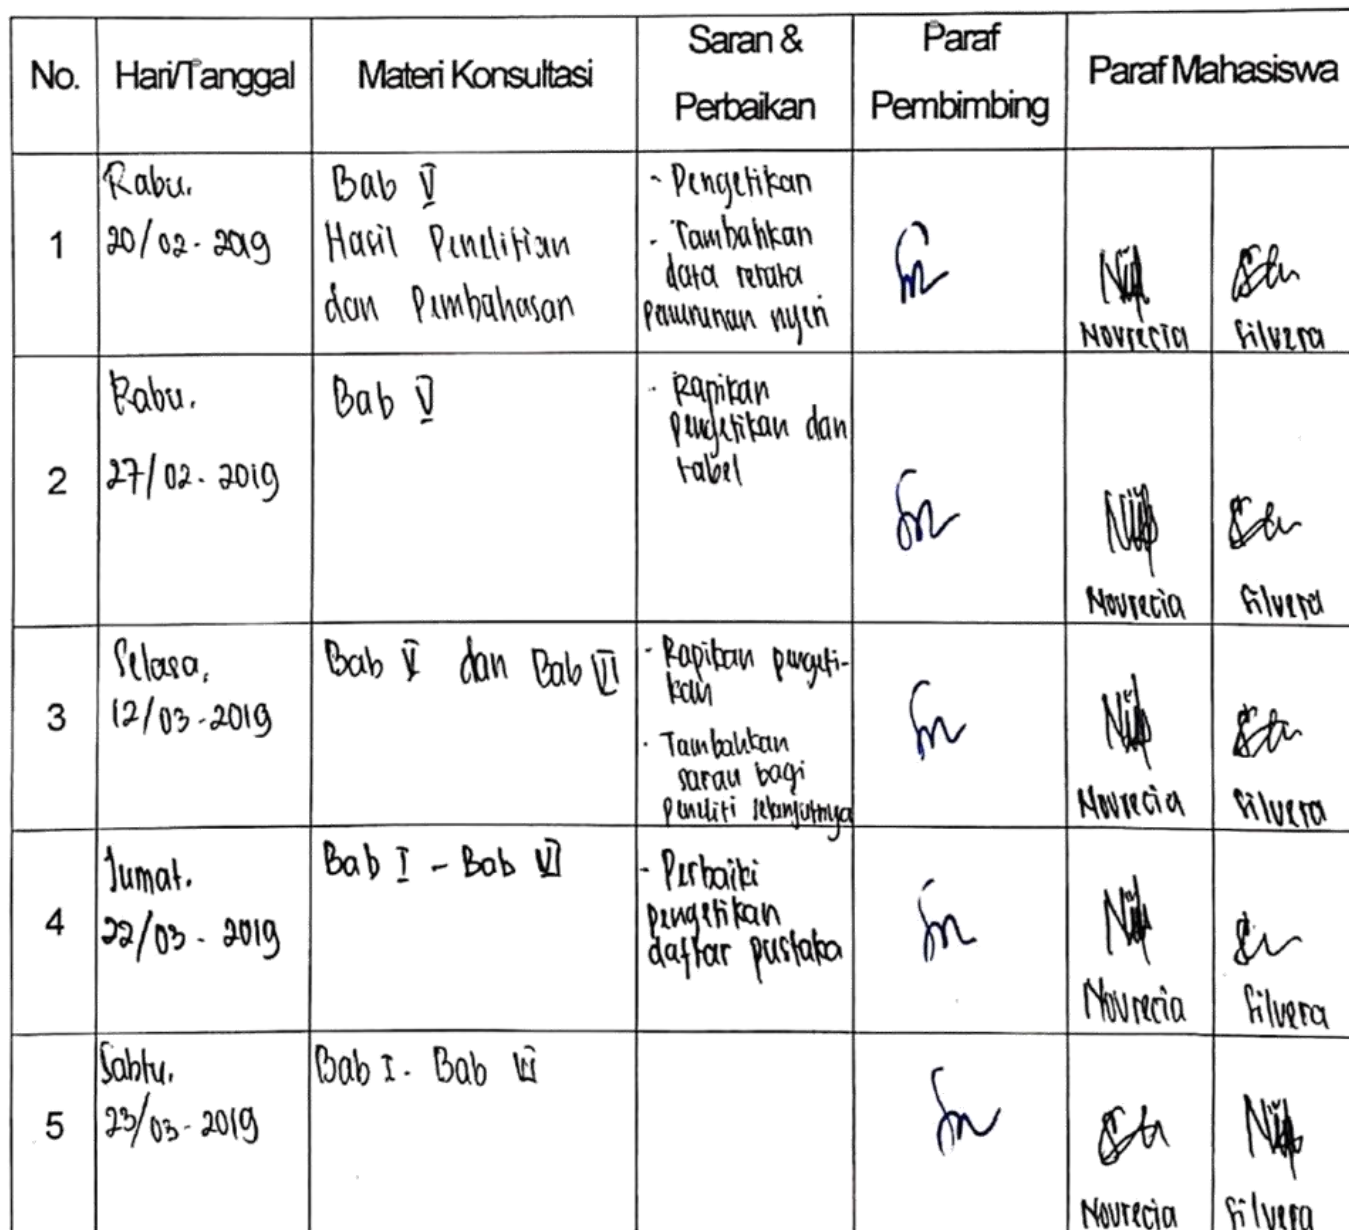 No.
Hari/Tanggal
Materi Konsultasi
Saran &
Perbaikan
Paraf
Pembimbing
Paraf Mahasiswa
1
Rabu.
20/02-2019
Bab V
Hasil Penelitian
dan Pembahasan
- Pengetikan
- Tambahkan
data rerata
penurunan nyeri
Novrecia
Silvera
2
Rabu.
27/02-2019
Bab V
- Rapikan
pengetikan dan
tabel
Novrecia
Silvera
3
Selasa,
12/03-2019
Bab V dan Bab VI
- Rapikan pengeti-
kan
- Tambahkan
saran bagi
peneliti selanjutnya
Novrecia
Silvera
4
Jumat.
22/03-2019
Bab I - Bab VI
- Perbaiki
pengetikan
daftar pustaka
Novrecia
Silvera
5
Sabtu,
23/03-2019
Bab I - Bab VI
Novrecia
Silvera